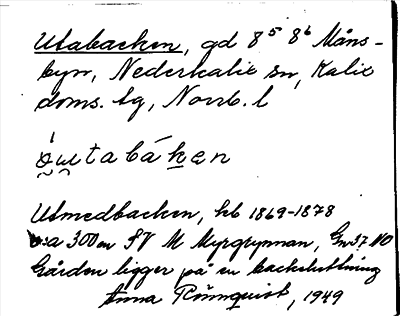 Utabacken, gd 8⁵ 8⁶ Måns-
byn, Nederkalix sn, Kalix
doms. lg, Norrb. l
Utmedbacken, hb 1869-1878
c:a 300 m SV M Myrgrynnan, Gn 37 NO
Gården ligger på en backsluttning
Anna Rönnquist, 1949